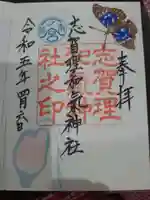 奉拝
志賀理和氣神社
志賀理
和氣神
社之印
令和五年四月六日